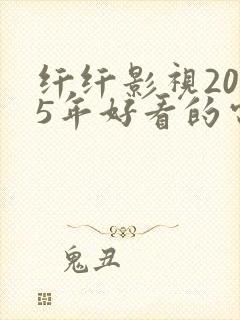 纤纤影視20
5年好看的
鬼丑